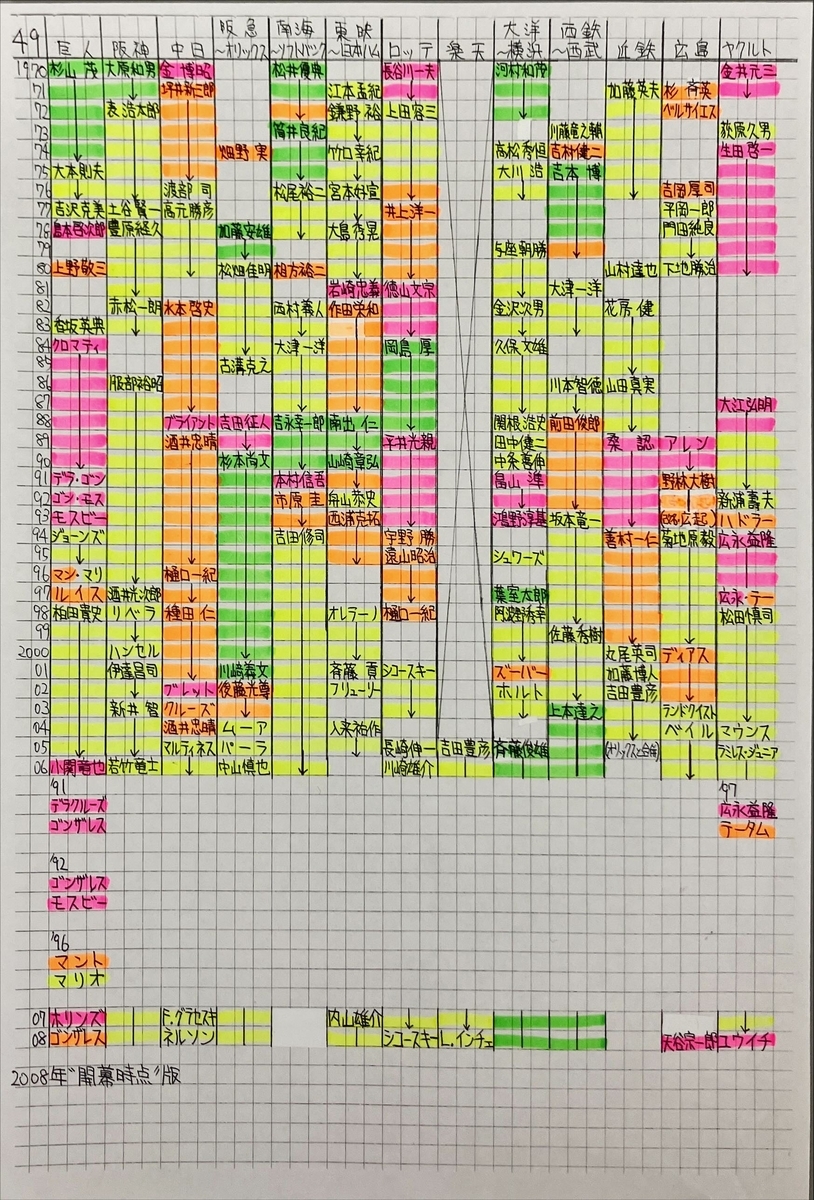 49 巨人 阪神 中日 阪急～オリックス 南海～ソフトバンク 東映～日本ハム ロッテ 楽天 大洋～横浜 西鉄～西武 近鉄 広島 ヤクルト
1970 杉山 茂 大原和男 金 博昭 松井優典 長谷川一夫 河村和茂 金井元三
71 坪井新三郎 江本孟紀 加藤英夫 杉 斉英
72 表 浩太郎 鎌野 裕 上田容三 ベルサイエス
73 筒井良紀 川藤竜之輔 荻原久男
74 畑野 実 竹口幸紀 高松秀恒 吉村健二 生田啓一
75 大本則夫 大川 浩 吉本 博
76 渡部 司 松尾裕二 宮本好宣 吉岡厚司
77 吉沢克美 土谷賢一 高元勝彦 井上洋一 平岡一郎
78 島本啓次郎 豊原経久 加藤安雄 大島秀晃 門田純良
79 与座朝勝
80 上野敬三 松畑佳明 相方裕二 山村達也 下地勝治
81 岩崎忠義 徳山文宗 大津一洋
82 赤松一朗 水本啓史 西村義人 作田栄和 金沢次男 花房 健
83 香坂英典
84 クロマティ 大津一洋 岡島 厚 久保文雄
85 古溝克之
86 服部裕昭 川本智徳 山田真実
87 大江弘明
88 ブライアント 吉田征人 吉永幸一郎 南出 仁 関根浩史 前田俊郎
89 酒井忠晴 平井光親 田中健二 桑 認 アレン
90 杉本尚文 山崎章弘 中条善伸
91 デラ・ゴン 本村信吾 畠山 準 野林大樹
92 ゴン・モス 市原 圭 舟山恭史 新浦壽夫
93 モスビー 西浦克拓 鴻野淳基 坂本竜一 (改名広起) ハドラー
94 ジョーンズ 吉田修司 宇野 勝 善村一仁 菊地原毅 広永益隆
95 遠山昭治 シュワーズ
96 マン・マリ 樋口一紀
97 ルイス 酒井光次郎 葉室太郎 広永・テー
98 柏田貴史 リベラ 種田 仁 オレラーノ 樋口一紀 阿波野秀幸 松田慎司
99 佐藤秀樹
2000 ハンセル 丸尾英司 ディアス
01 伊達昌司 川﨑義文 斉藤 貢 シコースキー ズーバー 加藤博人
02 ブレット 後藤光尊 フリューリー ホルト 吉田豊彦
03 新井 智 クルーズ 上本達之 ランドクイスト
04 酒井忠晴 ムーア 入来祐作 ベイル マウンス
05 マルティネス パーラ 長崎伸一 吉田豊彦 斉藤俊雄 (オリックスと合併) ラミレス・ジュニア
06 小関竜也 若竹竜士 中山慎也 川崎雄介
'91 '97
デラクルーズ 広永益隆
ゴンザレス テータム
'92
ゴンザレス
モスビー
'96
マント
マリオ
07 ホリンズ F.グラセスキ 内山雄介
08 ゴンザレス ネルソン シコースキー L.インチェ 天谷宗一郎 ユウイチ
2008年"開幕時点"版